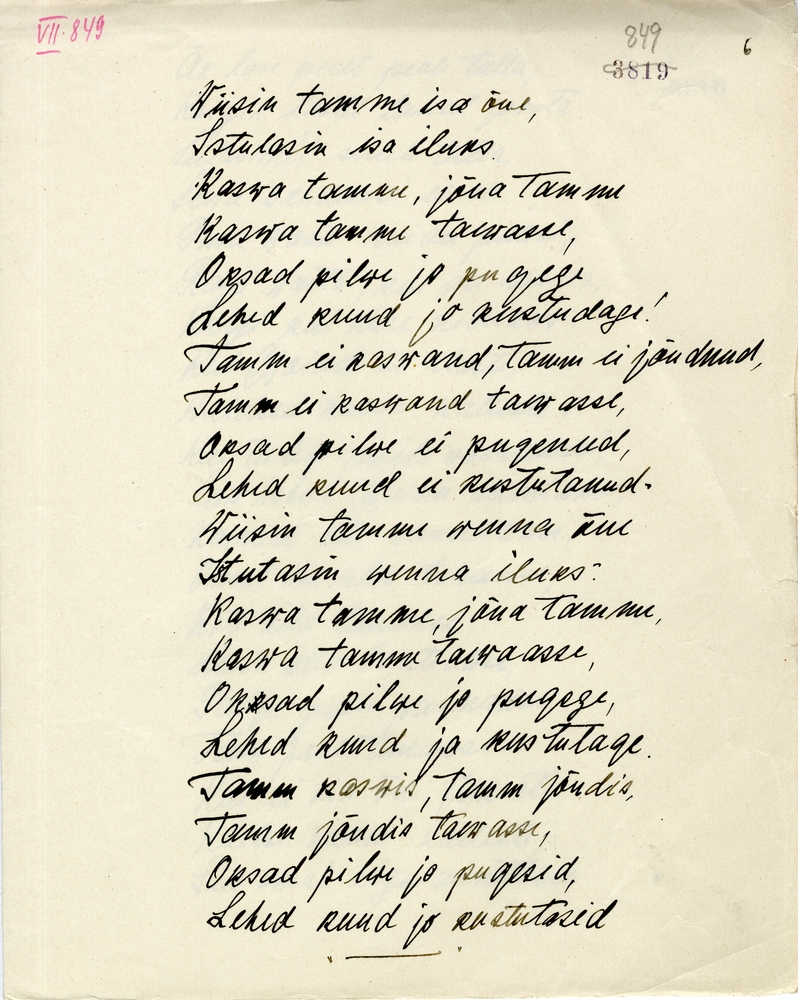 VII. 849
849
3819
6
Wiisin tamme isa õue,
Istutasin isa iluks.
Kaswa tamme, jõua tamme
Kaswa tamme taewasse,
Oksad pilwe ja pugege
Lehed kuud ja kustudage!
Tamm ei kaswand, tamm ei jõudnud,
Tamm ei kaswand taewasse,
Oksad pilwe ei pugenud,
Lehed kuud ei kustutanud.
Wiisin tamme wenna õue
Istutasin wenna iluks:
Kaswa tamme, jõua tamme,
Kaswa tamme taewaasse,
Oksad pilwe ja pugege,
Lehed kuud ja kustutage.
Tamm kaswis, tamm jõudis,
Tamm jõudis taewasse,
Oksad pilwe ja pugesid,
Lehed kuud ja kustutasid